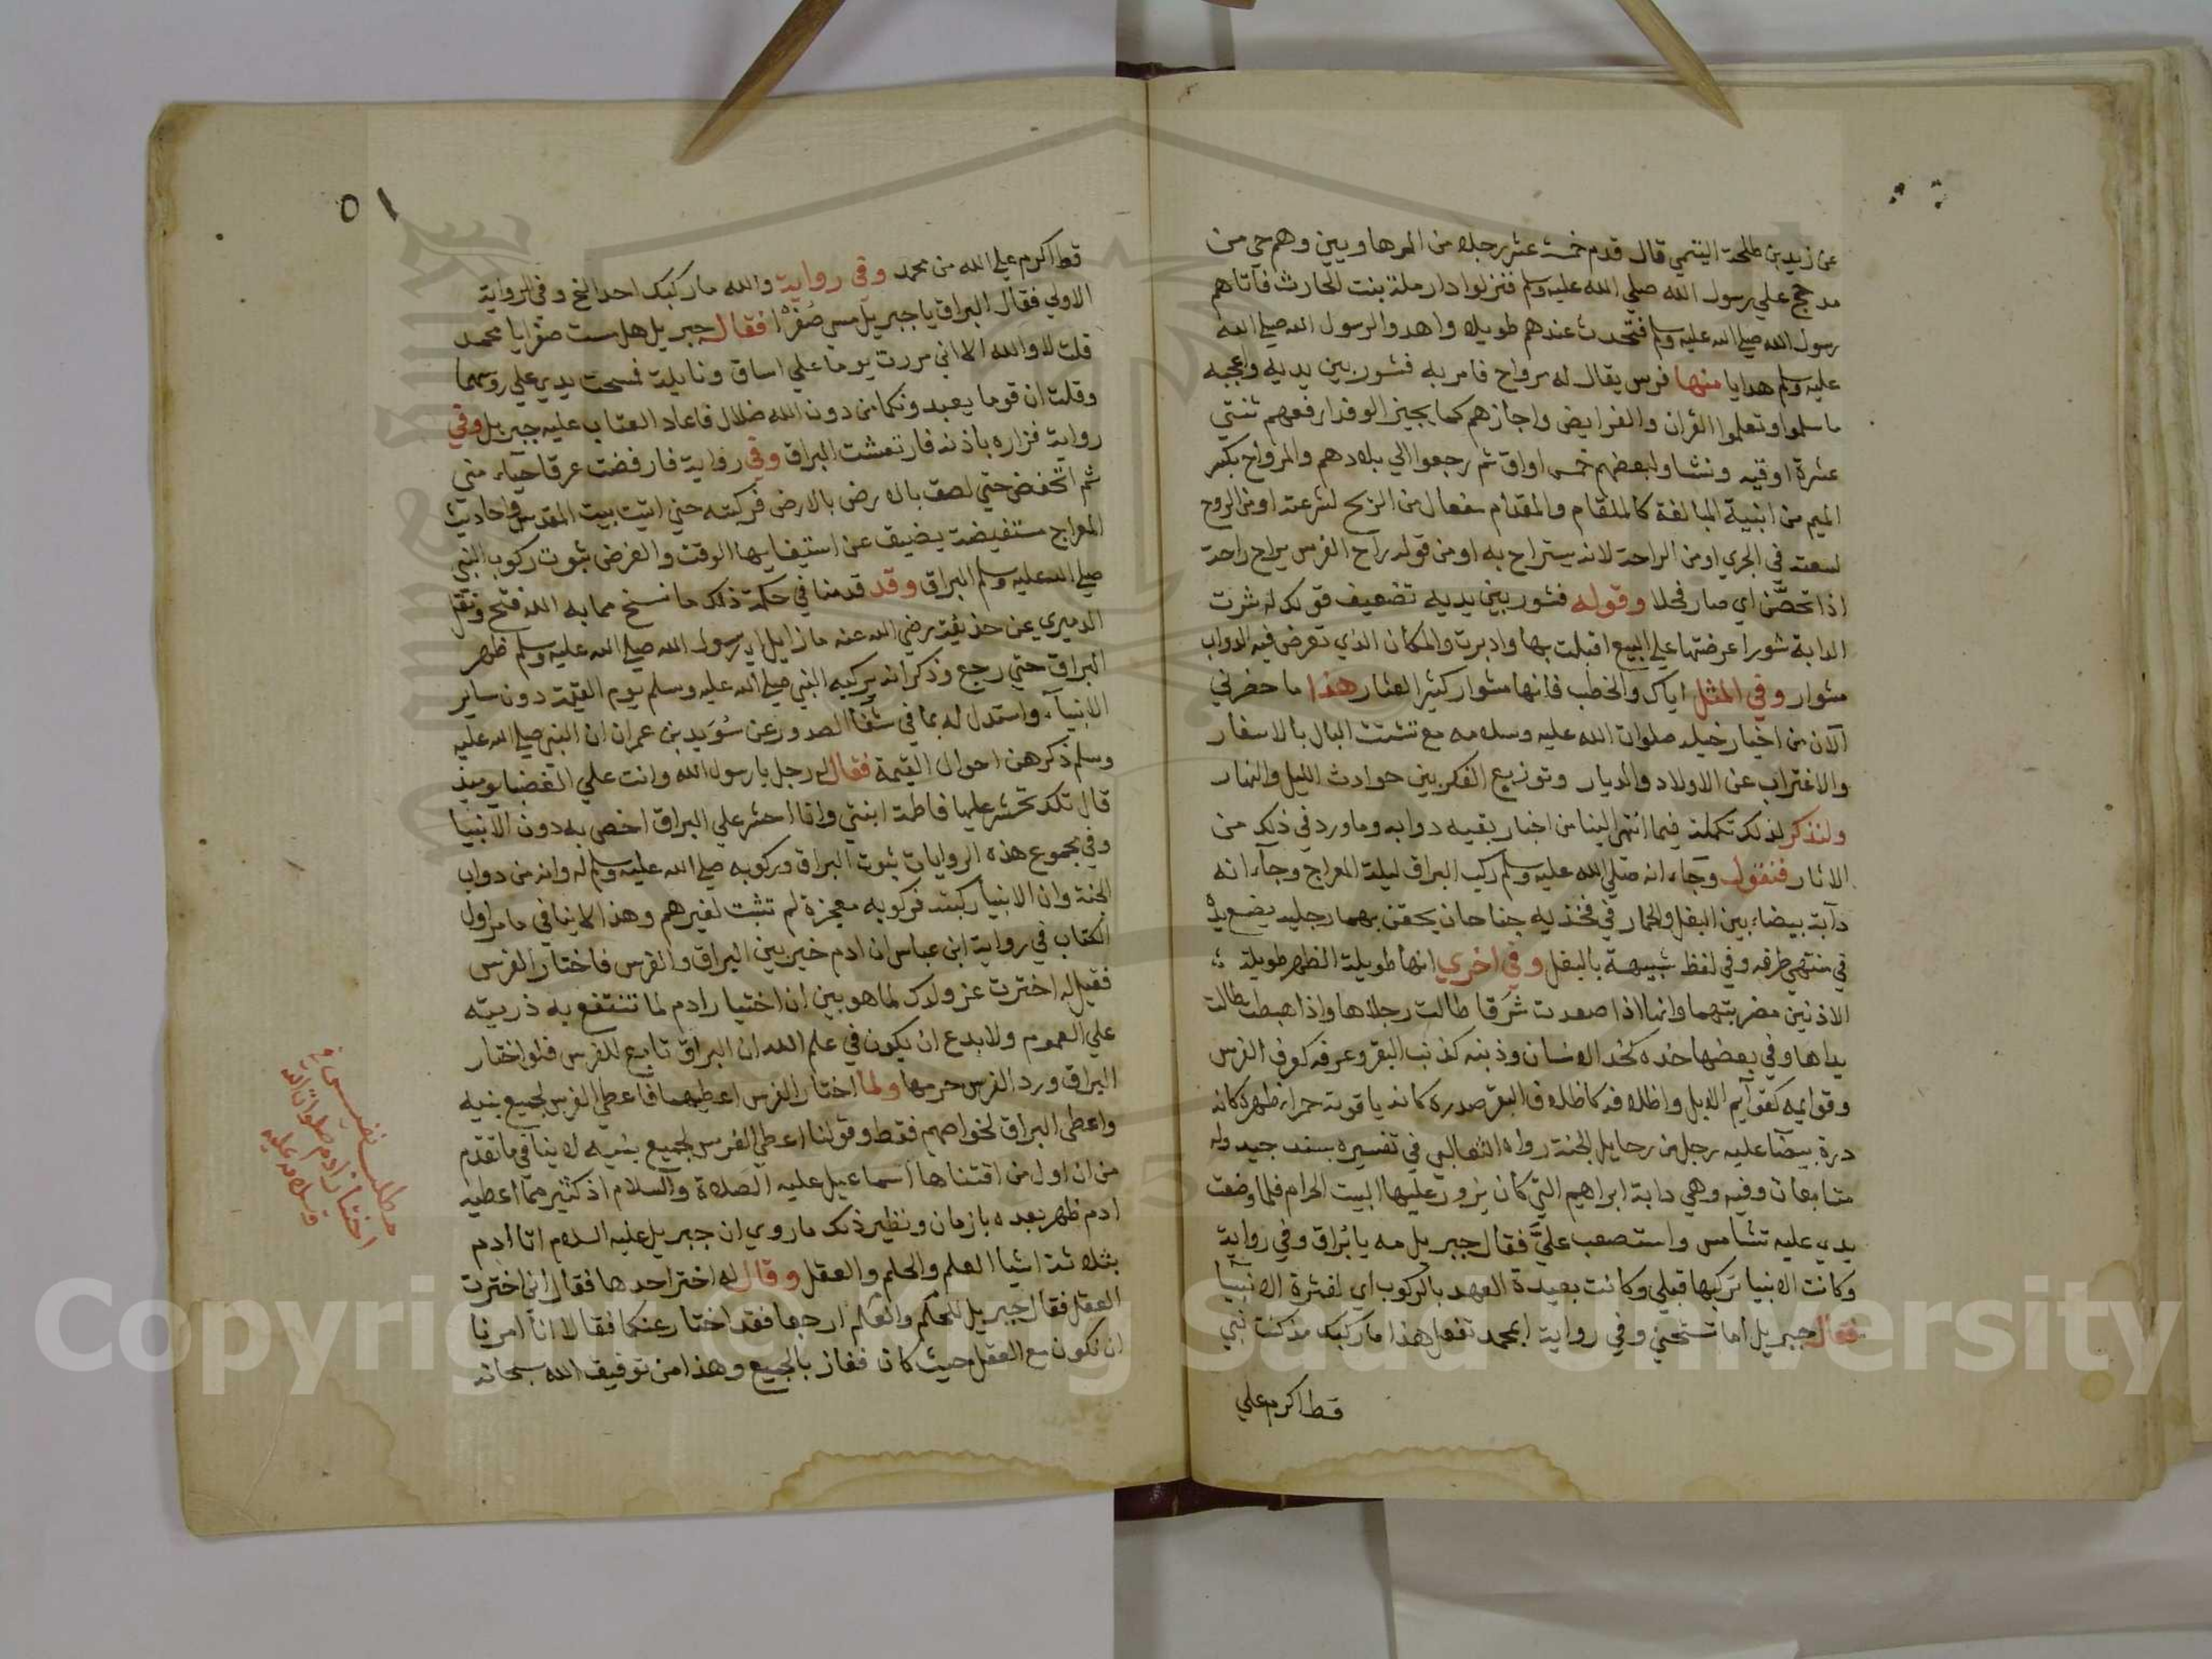 عن زيد بن طلحة التيمي قال قدم خمسة عشر رجلا من الرهاويين وهم حي من
مدحج علي رسول الله صلي الله عليه وسلم فنزلوا دار رملة بنت الحارث فاتاهم
رسول الله صلي الله عليه وسلم فتحدث عندهم طويلا واهدوا لرسول الله صلي الله
عليه وسلم هدايا منها فرس يقال له مرواح فامر به فشور بين يديه واعجبه
فاسلموا وتعلموا القران والفرايض واجازهم كما يجيز الوفد ارفعهم ثنتي
عشرة اوقيه ونشا ولبعضهم خمس اواق ثم رجعوا الي بلادهم والمرواح بكسر
الميم من ابنية المبالغة كالملقام والمقدام مفعال من الريح لسرعته او من الروح
لسعته في الجري او من الراحة لانه يستراح به او من قولهم راح الفرس يراح راحة
اذا تحصّن اي صار فحلا وقوله فشور بين يديه تضعيف قولك شرت
الدابة شورا عرضتها علي البيع اقبلت بها وادبرت والمكان الذي تعرض فيه الدواب
مشوار وفي المثل اياك والخطب فانها مشوار كثير العثار هذا ما حضرني
الآن من اخبار خيله صلوات الله عليه وسلامه مع تشتت البال بالاسفار
والاغتراب عن الاولاد والديار وتوزيع الفكر بين حوادث الليل والنهار
ولنذكر لذلك تكملة فيما انتهي الينا من اخبار بقيه دوابه وما ورد في ذلك من
الاثار فنقول وجآء انه صلي الله عليه وسلم ركب البراق ليلة المعراج وجآء انه
دآبة بيضاء بين البغل والحمار في فخذيه جناحان يحفز بهما رجليه يضع يده
في منتهي طرفه وفي لفظ شبيهة بالبغل وفي اخري انها طويلة الظهر طويلة
الاذنين مضربتهما وانها اذا صعدت شرقا طالت رجلاها واذا هبطت طالت
يداها وفي بعضها خده كخد الانسان وذنبه كذنب البقر وعرفه كعرف الفرس
وقوايمه كقوآيم الابل واظلافه كاظلاف البقر صدره كانه ياقوتة حمرا وظهره كانه
درة بيضآ عليه رحل من رحايل الجنة رواه الثعالبي في تفسيره بسند جيد وله
متابعات وفيه وهي دابة ابراهيم التي كان يزور عليها البيت الحرام فلما وضعت
يدي عليه تشامس واستصعب عليَّ فقال جبريل مه يا بُراق وفي رواية
وكانت الانبيا تركبها قبلي وكانت بعيدة العهد بالركوب اي لفترة الانبيآ
فقال جبريل اما تستحيي وفي رواية ابمحمد تفعل هذا ما ركبك مذ كنت نبي
قط اكرم علي
٥١
قط اكرم علي الله من محمد وفي رواية والله ما ركبك احد الخ وفي الرواية
الاولي فقال البراق يا جبريل مس صُفرًا فقال جبريل هل مسست صفرا يا محمد
قلت لا والله الا اني مررت يوما علي اساق ونايلة فمسحت يدي علي روسهما
وقلت ان قوما يعبدونكما من دون الله ضلال فاعاد العتاب عليه جبريل وفي
رواية فزاره باذنه فارتعشت البراق وفي رواية فارفضت عرقا حيآء مني
ثم انخفض حتي لصق بالارض بالارض فركبته حتي اتيت بيت المقدس واحاديث
المعراج مستفيضة يضيق عن استيفايها الوقت والغرض ثبوت ركوب النبي
صلي الله عليه وسلم البراق وقد قدمنا في حكمة ذلك ما نسخ مما به الله فتح ونقل
الدميري عن حذيفة رضي الله عنه ما زايل اي رسول الله صلي الله عليه وسلم ظهر
البراق حتي رجع وذكر انه يركبه النبي صلي الله عليه وسلم يوم القيمة دون ساير
الانبيآء واستدل له بما في شفآ الصدور عن سُوَيد بن عمران ان النبي صلي الله عليه
وسلم ذكر من احوال القيمة فقال له رجل يا رسول الله وانت علي العضبا يوميذ
قال تلك تحشر عليها فاطمة ابنتي وانا احشر علي البراق اخص به دون الانبيا
وفي مجموع هذه الروايات ثبوت البراق وركوبه صلي الله عليه وسلم له وانه من دواب
الجنة وان الانبيا ركبته فركوبه معجزة لم تثبت لغيرهم وهذا لا ينافي ما مر اول
الكتاب في رواية ابن عباس ان ادم خير بين البراق والفرس فاختار الفرس
فقيل له اخترت عز ولدك لما هو بين ان اختيار ادم لما تنتفع به ذريته
علي العموم ولا بدع ان يكون في علم الله ان البراق تابع للفرس فلو اختار
البراق ورد الفرس حرمها ولما اختار الفرس اعطيهما فاعطي الفرس لجميع بنيه
واعطي البراق لخواصهم فقط وقولنا اعطي الفرس لجميع بنيه لا ينافي ما تقدم
من ان اول من اقتناها اسماعيل عليه الصلاة والسلام اذ كثير مما اعطيه
ادم ظهر بعده بازمان ونظير ذلك ما روي ان جبريل عليه السلام اتا ادم
بثلاثة اشيا العلم والحلم والعقل وقال له اختر احدها فقال اني اخترت
العقل فقال جبريل للحلم والعلم ارجعا فقد اختار عنكما فقالا انا امرنا
ان نكون مع العقل حيث كان ففاز بالجميع وهذا من توفيق الله سبحانه
مطلب نفيس في
اختيار ادم صلوات الله
وسلامه عليه
Copyright © King Saud University